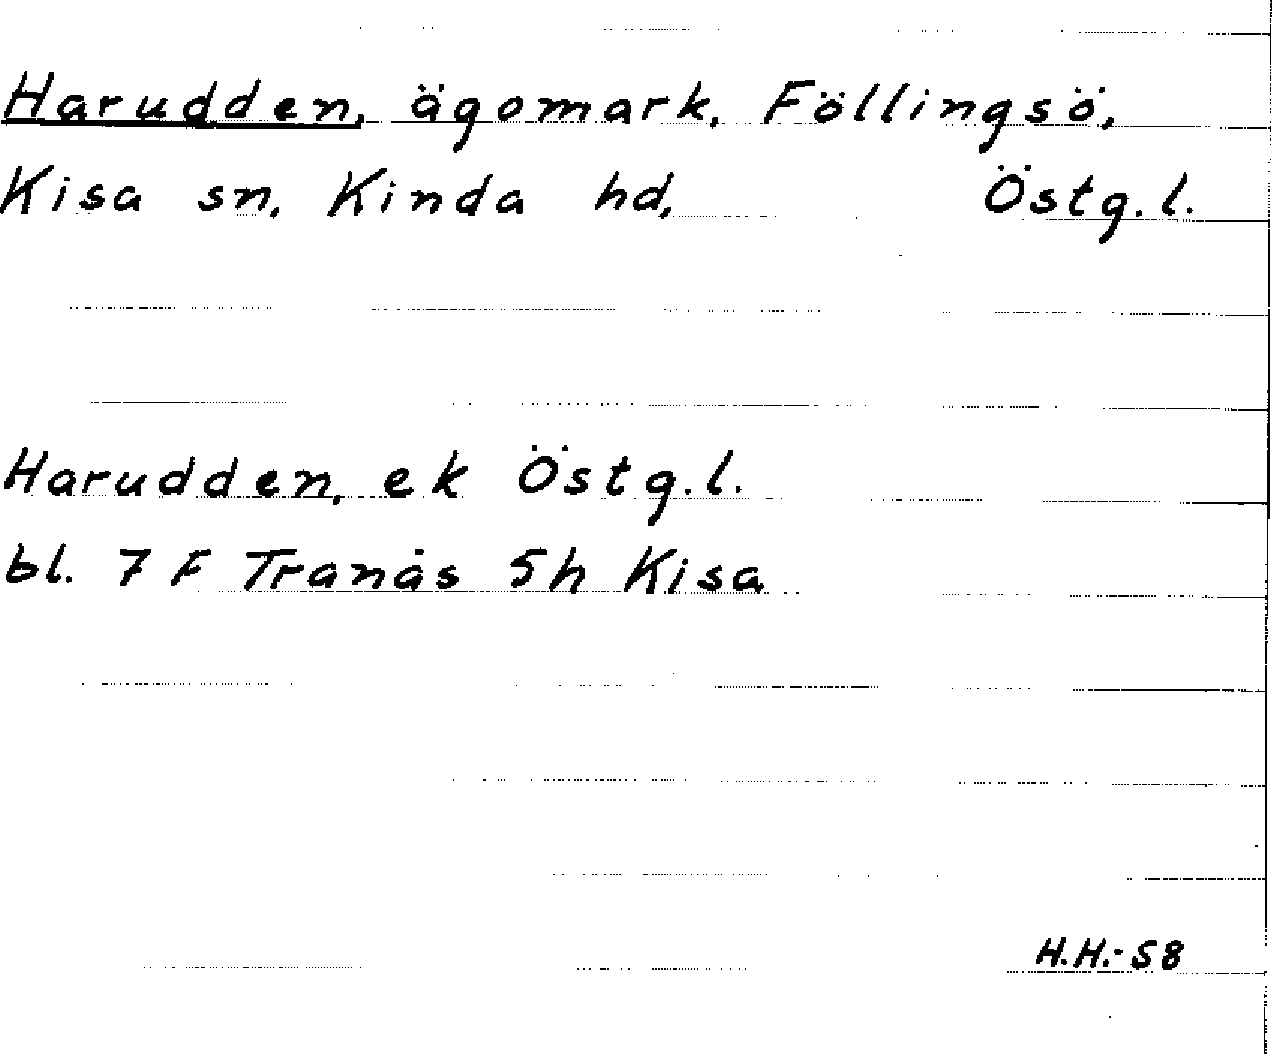 Harudden, ägomark, Föllingsö,
Kisa sn, Kinda hd, Östg.l.
Harudden, ek Östg.l.
bl. 7 F Tranås 5h Kisa
H.H.-58